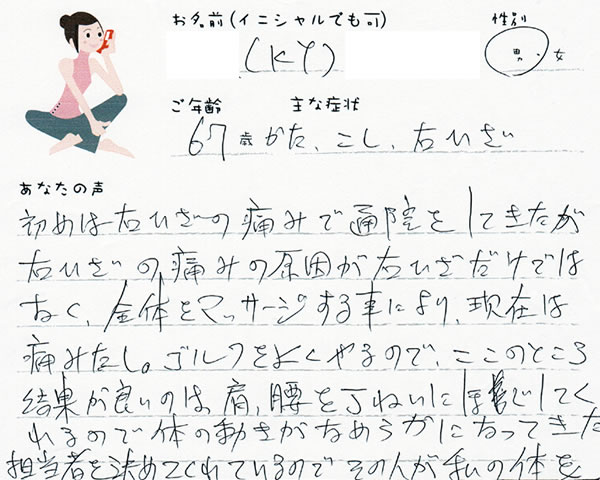 お名前(イニシャルでも可) 性別
(KY) 男・女
ご年齢 主な症状
67歳 かた、こし、右ひざ
あなたの声
初めは右ひざの痛みで通院をしてきたが
右ひざの痛みの原因が右ひざだけでは
なく、全体をマッサージする事により、現在は
痛みなし。ゴルフをよくやるので、ここのところ
結果が良いのは肩、腰を丁ねいにほぐしてく
れるので体の動きがなめらかになってきた
担当者を決めてくれているのでその人が私の体を